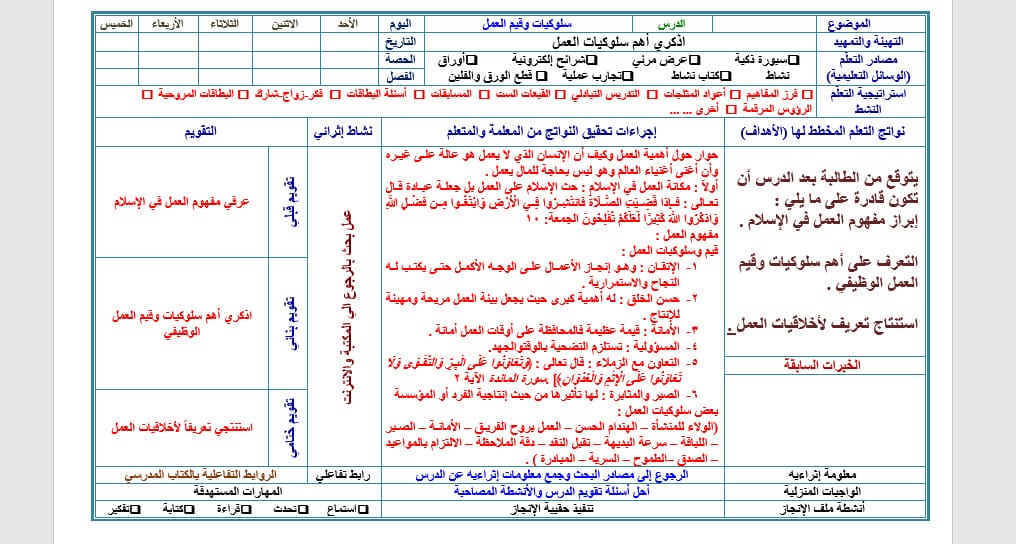 الموضوع الدرس سلوكيات وقيم العمل اليوم الأحد الاثنين الثلاثاء الأربعاء الخميس
التهيئة والتمهيد اذكري أهم سلوكيات العمل التاريخ
مصادر التعلم (الوسائل التعليمية)
□سبورة ذكية □عرض مرئي □شرائح إلكترونية □أوراق
نشاط □كتاب نشاط □تجارب عملية □ قطع الورق والفلين
الحصة
الفصل
استراتيجية التعلم النشط
□ فرز المفاهيم □ أعواد المثلجات □ التدريس التبادلي □ القبعات الست □ المسابقات □ أسئلة البطاقات □ فكر-زواج-شارك □ البطاقات المروحية □
الرؤوس المرقمة □ أخرى ... ...
نواتج التعلم المخطط لها (الأهداف) إجراءات تحقيق النواتج من المعلمة والمتعلم نشاط إثرائي التقويم
يتوقع من الطالبة بعد الدرس أن
تكون قادرة على ما يلي :
إبراز مفهوم العمل في الإسلام .
التعرف على أهم سلوكيات وقيم
العمل الوظيفي .
استنتاج تعريف لأخلاقيات العمل .
الخبرات السابقة
حوار حول أهمية العمل وكيف أن الإنسان الذي لا يعمل هو عالة على غيره
وأن أغنى أغنياء العالم وهو ليس بحاجة للمال يعمل .
أولاً : مكانة العمل في الإسلام : حث الإسلام على العمل بل جعلة عبادة قال
تعالى : فَإِذَا قُضِيَتِ الصَّلَاةُ فَانتَشِرُوا فِي الْأَرْضِ وَابْتَغُوا مِن فَضْلِ اللَّهِ
وَاذْكُرُوا اللَّهَ كَثِيرًا لَّعَلَّكُمْ تُفْلِحُونَ الجمعة: ١٠
مفهوم العمل :
قيم وسلوكيات العمل :
١- الإتقان : وهو إنجاز الأعمال على الوجه الأكمل حتى يكتب له
النجاح والاستمرارية .
٢- حسن الخلق : له أهمية كبرى حيث يجعل بيئة العمل مريحة ومهيئة
للإنتاج .
٣- الأمانة : قيمة عظيمة فالمحافظة على أوقات العمل أمانة .
٤- المسؤولية : تستلزم التضحية بالوقتوالجهد.
٥- التعاون مع الزملاء : قال تعالى : (وَتَعَاوَنُوا عَلَى الْبِرِّ وَالتَّقْوَى وَلَا
تَعَاوَنُوا عَلَى الْإِثْمِ وَالْعُدْوَانِ)] .سورة المائدة الآية ٢
٦- الصبر والمثابرة : لها تأثيرها من حيث إنتاجية الفرد أو المؤسسة
بعض سلوكيات العمل :
(الولاء للمنشأة – الهندام الحسن – العمل بروح الفريق – الأمانة – الصبر
– اللباقة – سرعة البديهة – تقبل النقد – دقة الملاحظة – الالتزام بالمواعيد
– الصدق –الطموح – السرية – المبادرة ) .
عمل بحث بالرجوع الي المكتبة والانترنت
تقويم قبلي
عرفي مفهوم العمل في الإسلام
تقويم بنائي
اذكري أهم سلوكيات وقيم العمل
الوظيفي
تقويم ختامي
استنتجي تعريفاً لأخلاقيات العمل
معلومة إثراءيه الرجوع إلى مصادر البحث وجمع معلومات إثراءيه عن الدرس رابط تفاعلي الروابط التفاعلية بالكتاب المدرسي
الواجبات المنزلية أحل أسئلة تقويم الدرس والأنشطة المصاحبة المهارات المستهدفة
أنشطة ملف الإنجاز تنفيذ حقيبة الإنجاز □استماع □تحدث □قراءة □كتابة □تفكير